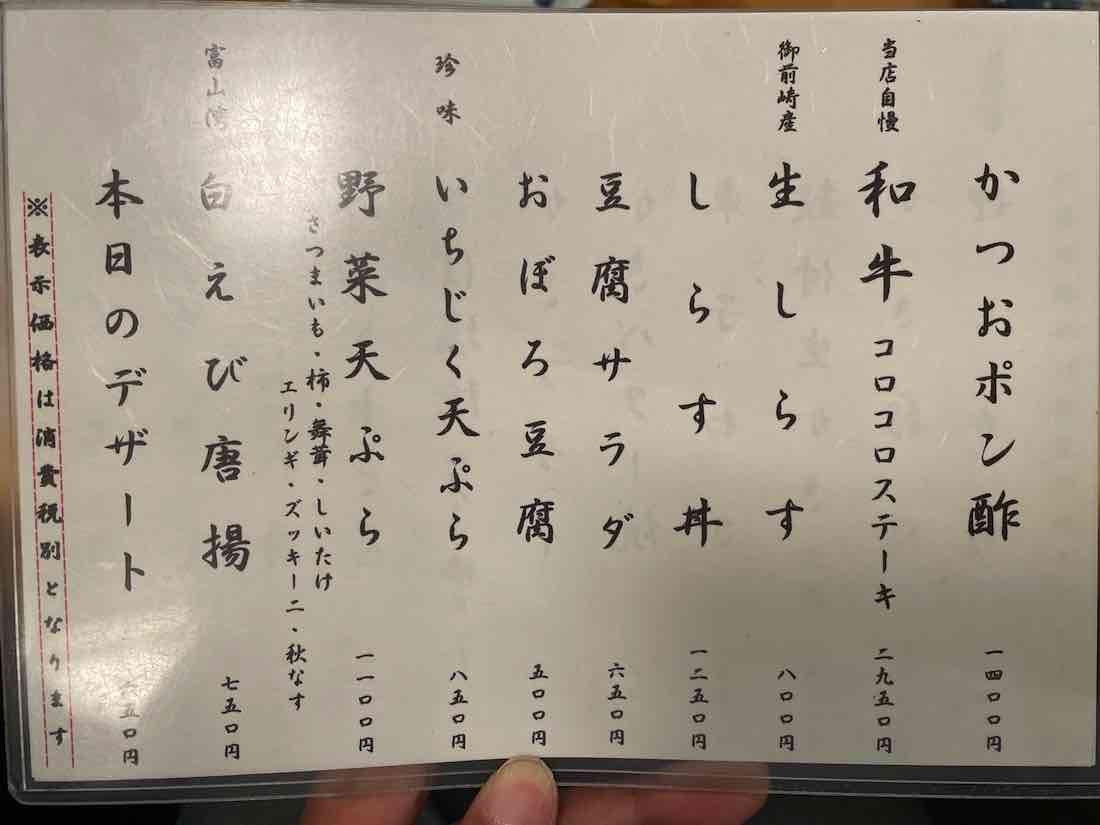 かつおポン酢 一四〇〇円
当店自慢 和牛コロコロステーキ 二九五〇円
御前崎産 生しらす 八〇〇円
しらす丼 一二五〇円
豆腐サラダ 六五〇円
おぼろ豆腐 五〇〇円
珍味 いちじく天ぷら 八五〇円
野菜天ぷら 一一〇〇円
さつまいも・柿・舞茸・しいたけ
エリンギ・ズッキーニ・秋なす
富山湾 白えび唐揚 七五〇円
本日のデザート 五〇円
※表示価格は消費税別となります